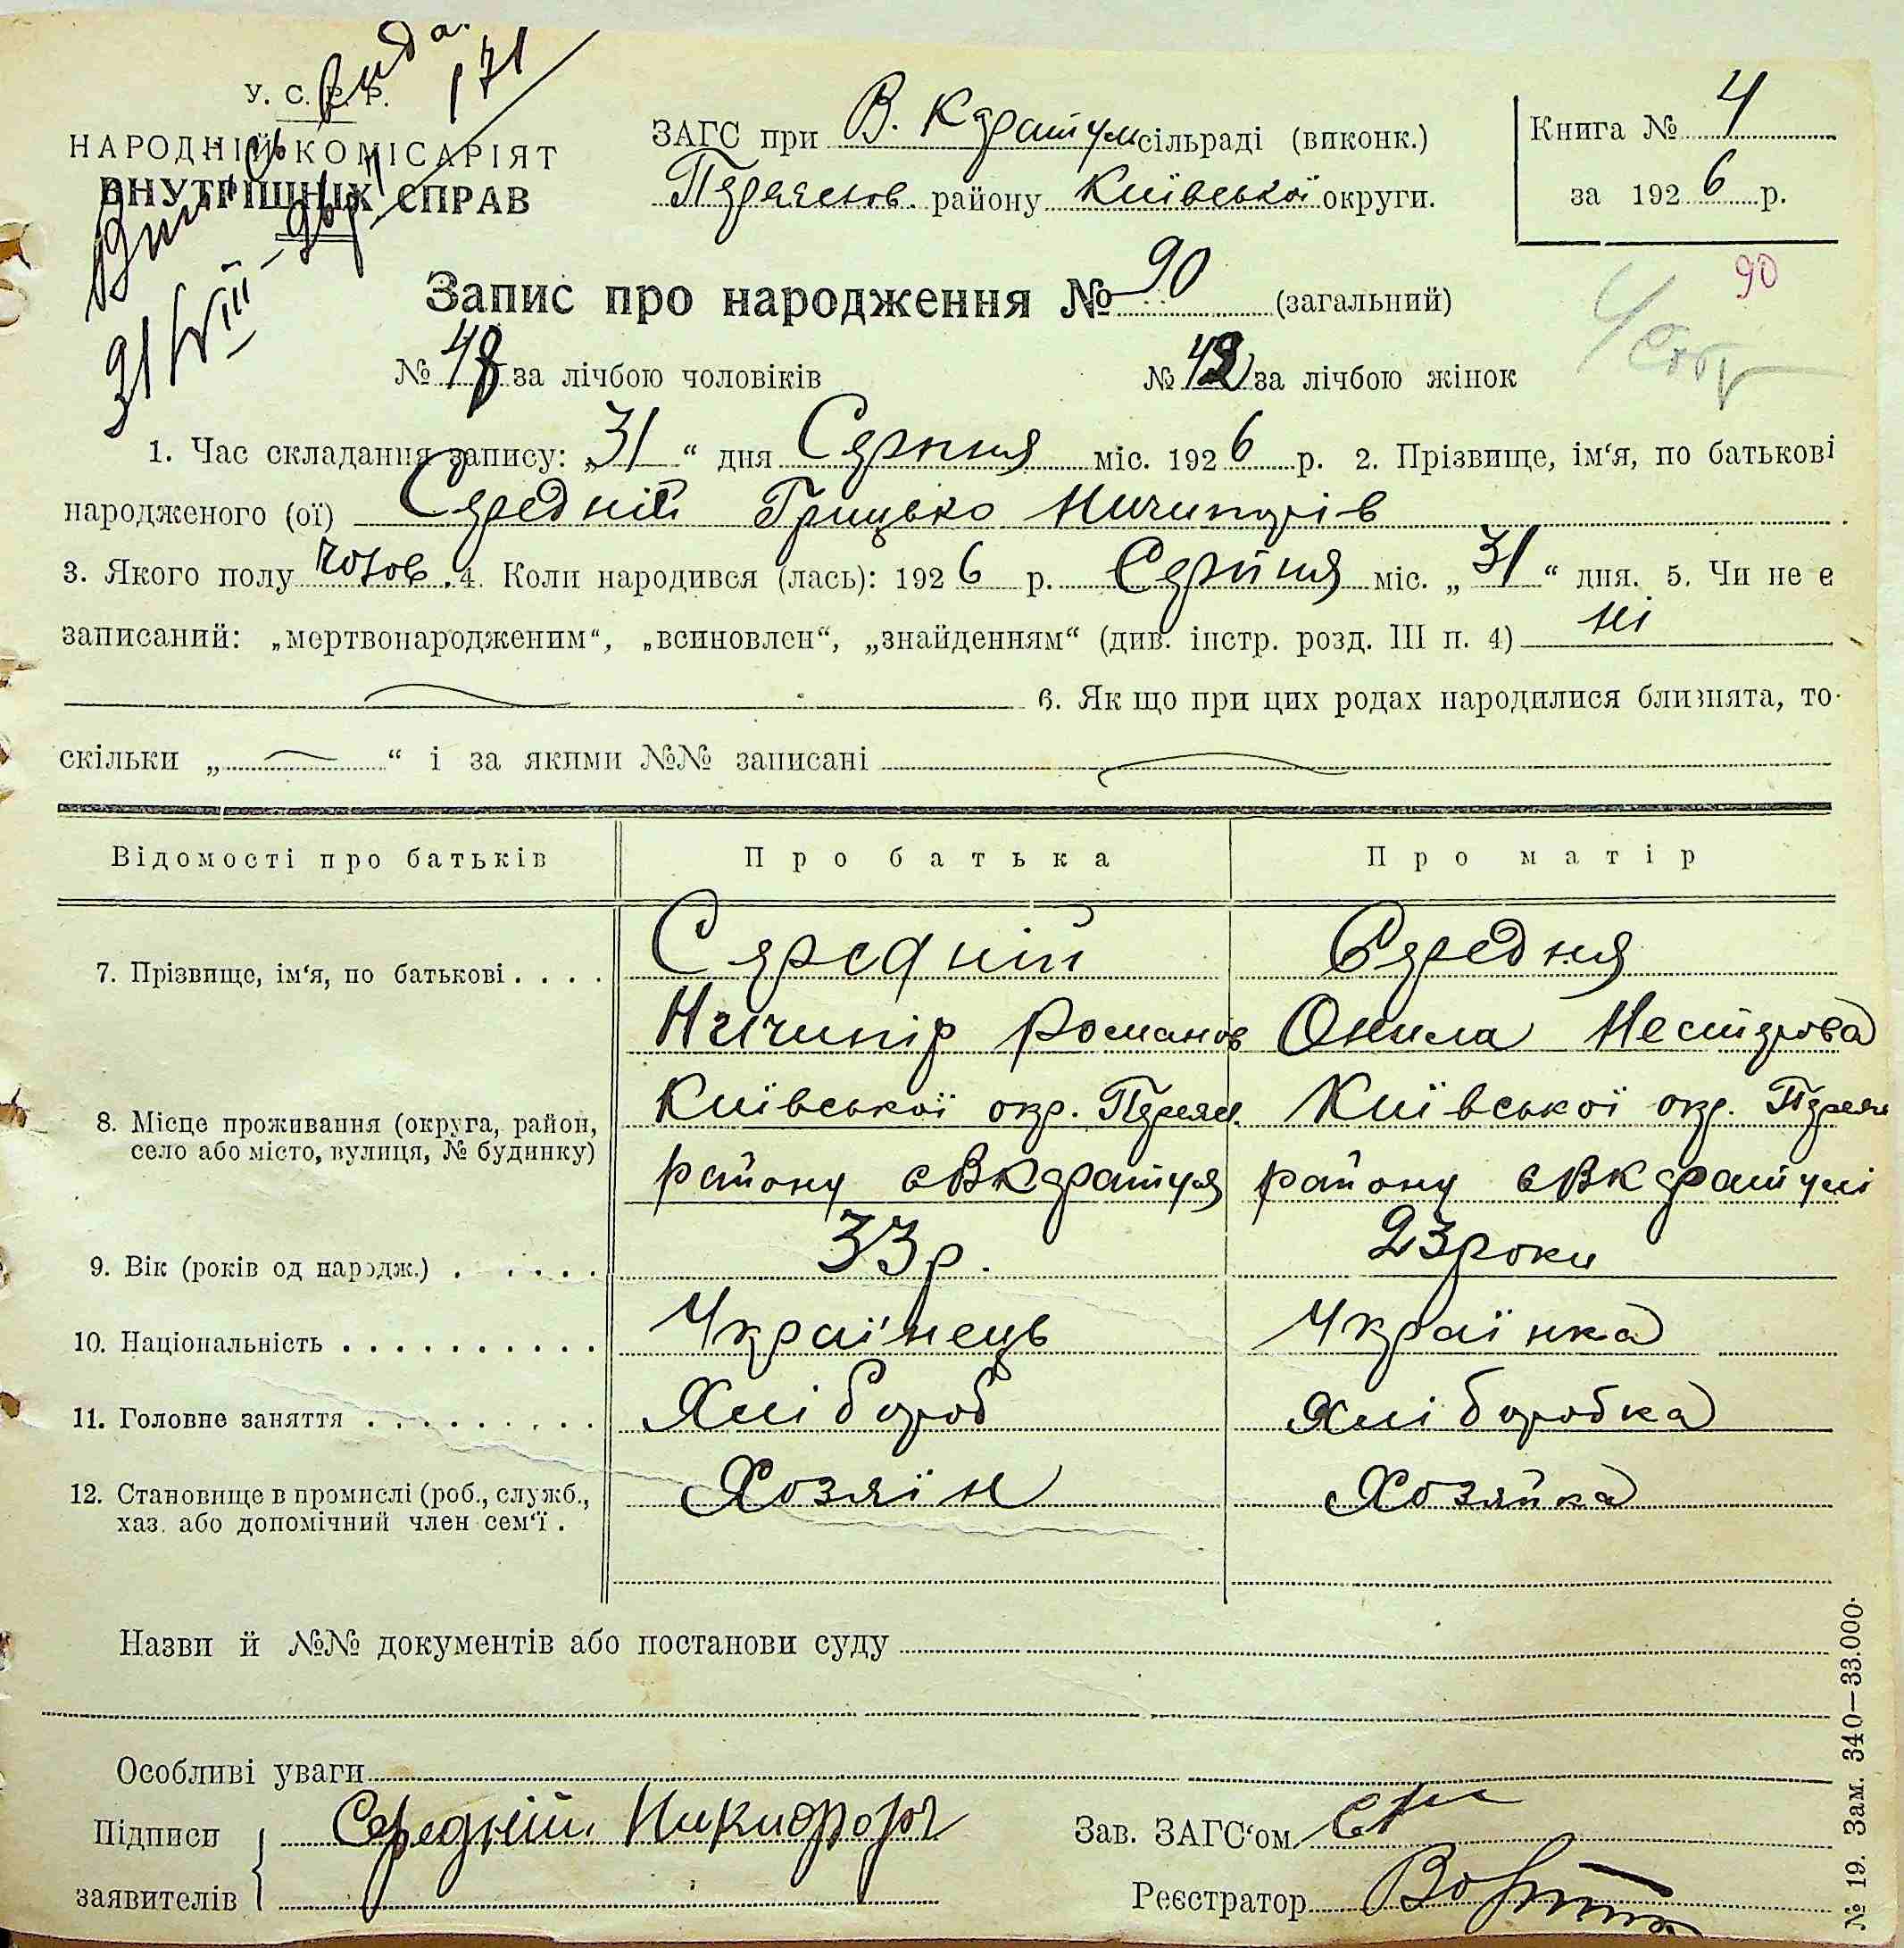 У. С. Р. Р.
НАРОДНІЙ КОМІСАРІЯТ
ВНУТРІШНІХ СПРАВ
Вида.
171
31/VIII-26 р
ЗАГС при В. Каратул сільраді (виконк.)
Переяслов. району Київської округи.
Книга № 4
за 1926 р.
Запис про народження № 90 (загальний)
90
№ 48 за лічбою чоловіків № 42 за лічбою жінок
1. Час складання запису: „31“ дня Серпня міс. 1926 р. 2. Прізвище, ім‘я, по батькові
народженого (ої) Середній Грицько Ничипорів
3. Якого полу чолов. 4. Коли народився (лась): 1926 р. Серпня міс. „31“ дня. 5. Чи не є
записаний: „мертвонародженим“, „всиновлен“, „знайденням“ (див. інстр. розд. III п. 4) ні
6. Як що при цих родах народилися близнята, то
скільки „ “ і за якими №№ записані
Відомості про батьків Про батька Про матір
7. Прізвище, ім‘я, по батькові . . . . Середній Середня
Ничипір Романов Онила Нестерова
8. Місце проживання (округа, район, село або місто, вулиця, № будинку) Київської окр. Переясл. Київської окр. Переясл
району с В Каратуля району с В Каратулі
9. Вік (років од народж.) . . . . . . 33 р. 23 роки
10. Національність . . . . . . . . . . Українець Українка
11. Головне заняття . . . . . . . . . Хлібороб Хліборобка
12. Становище в промислі (роб., служб., хаз. або допомічний член сем‘ї . Хозяїн Хозяйка
Назви й №№ документів або постанови суду
Особливі уваги
Підписи Середній Никифор Зав. ЗАГС‘ом
заявителів Реєстратор
№ 19. Зам. 340—33.000.